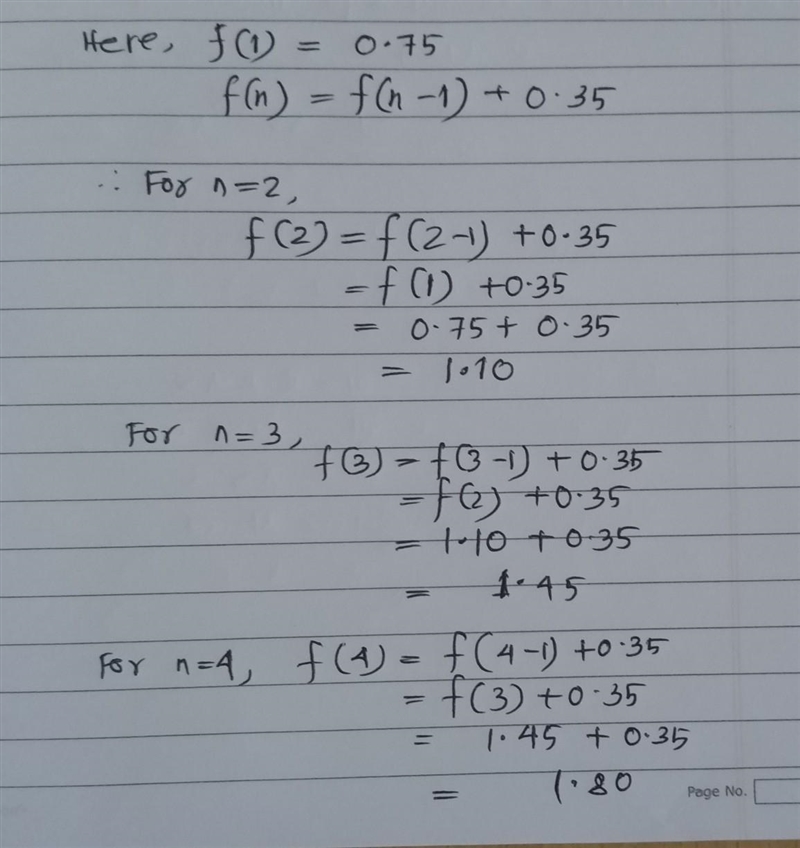 Here, f(1) = 0.75
f(n) = f(n-1) + 0.35
∴ For n=2,
f(2) = f(2-1) +0.35
= f(1) +0.35
= 0.75+ 0.35
= 1.10
For n=3,
f(3) = f(3-1) + 0.35
= f(2) +0.35
= 1.10 + 0.35
= 1.45
For n=4, f(4) = f(4-1) +0.35
= f(3) +0.35
= 1.45 + 0.35
= 1.80
Page No.